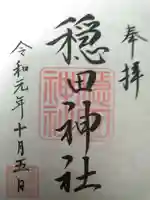 奉拝
穏田神社
令和元年十月五日